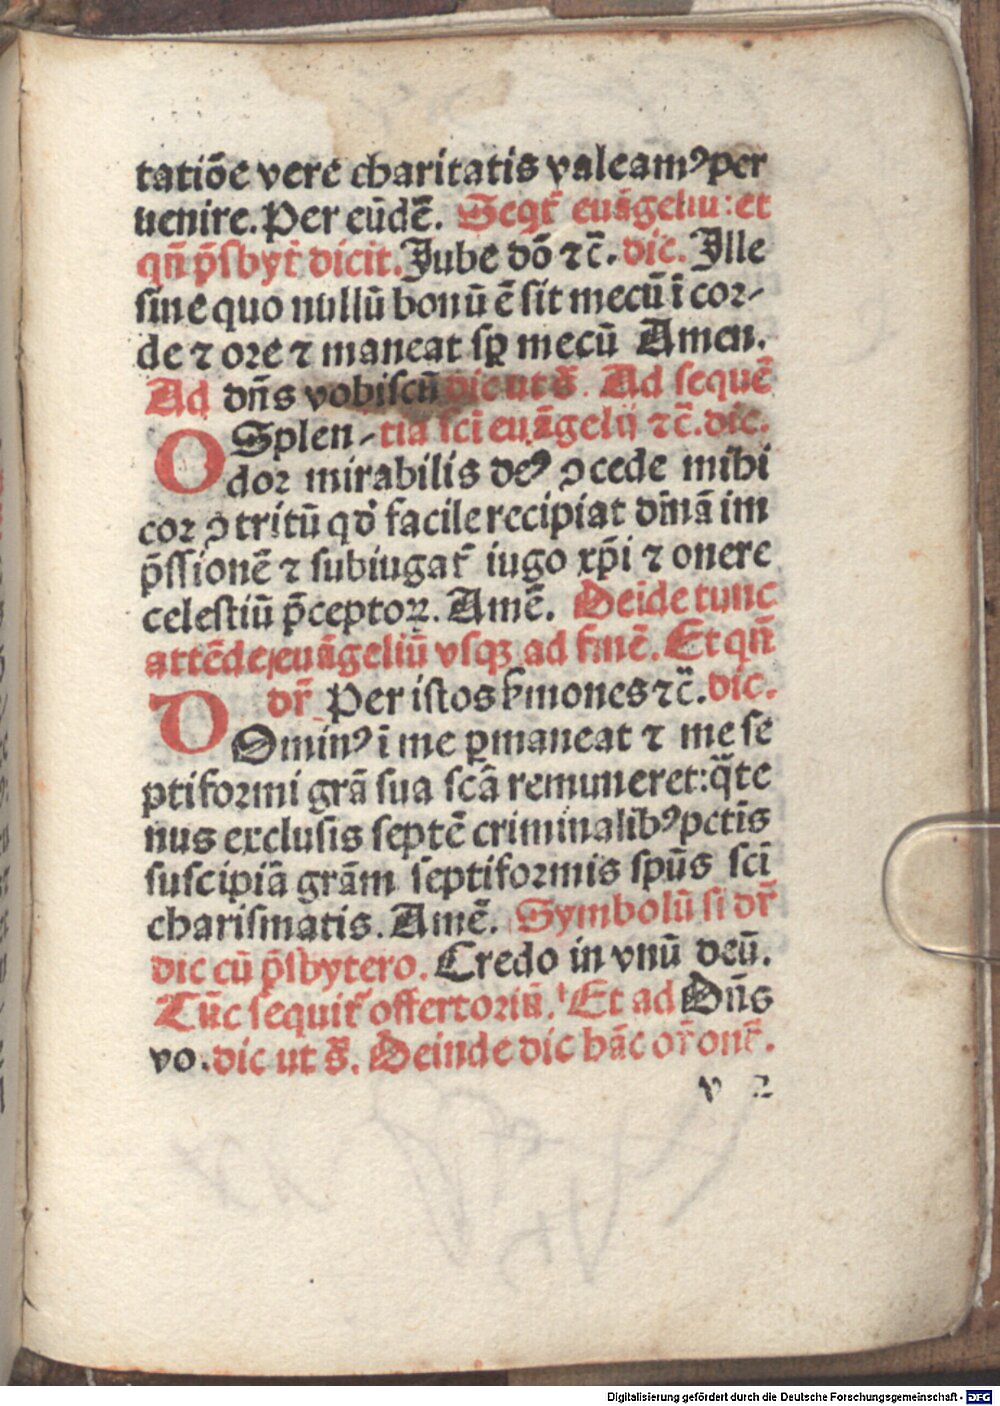 tatiōe vere charitatis valeamꝰ per
uenire. Per eūdē. Seqt᷑ euāgeliu: et
qn̄ p̄sbyt᷑ dicit. Jube dō ⁊c̄. dic. Ille
sine quo nullū bonū ē sit mecū ī cor⸗
de ⁊ ore ⁊ maneat sꝑ mecū Amen.
Ad dn̄s vobiscū dic ut s̄. Ad sequē
O Splen⸗tia sci euāgelij ⁊c̄. dic.
dor mirabilis deꝰ ꝯcede mihi
cor ꝯtritū qđ facile recipiat dīnā im
p̄ssionē ⁊ subiugat᷑ iugo xp̄i ⁊ onere
celestiū p̄ceptoꝝ. Amē. Deīde tunc
attēde euāgeliū vsqꝫ ad finē. Et qn̄
dr̄ Per istos s̄mones ⁊c̄. dic.
D Ominꝰ ī me ꝑmaneat ⁊ me se
ptiformi grā sua scā remuneret: q̄te
nus exclusis septē criminalibꝰ pctīs
suscipiā grām septiformis spūs sci
charismatis. Amē. Symbolū si dr̄
dic cū p̄sbytero. Credo in vnū deū.
Tūc sequit᷑ offertoriū. Et ad Dn̄s
vo. dic ut s̄. Deinde dic hāc or̄onē.
v 2
Digitalisierung gefördert durch die Deutsche Forschungsgemeinschaft - DFG